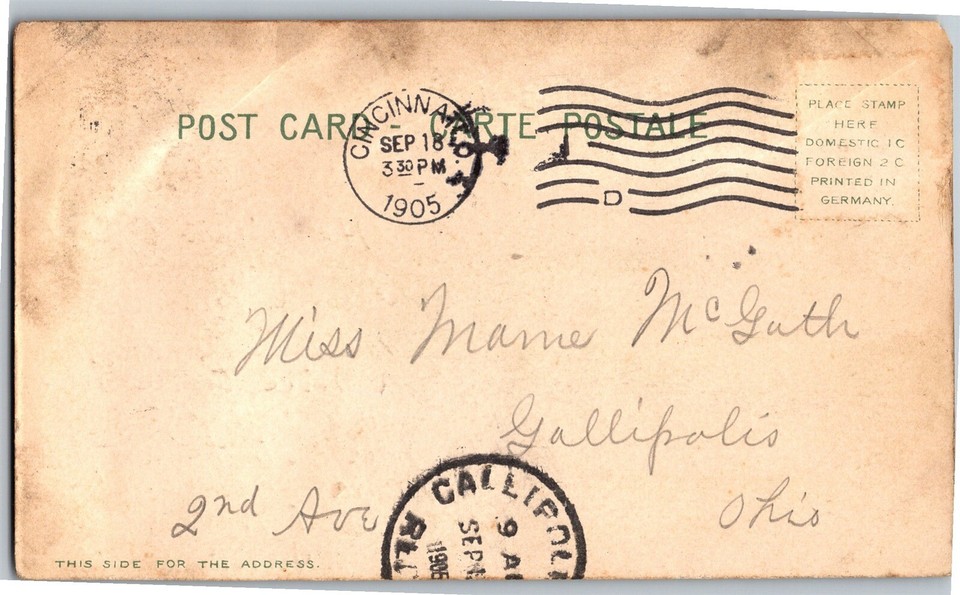 POST CARD - CARTE POSTALE
CINCINNATI, O.
SEP 18
3 30 PM
1905
D
PLACE STAMP
HERE
DOMESTIC 1 C
FOREIGN 2 C
PRINTED IN
GERMANY.
Miss Mame McGath
Gallipolis
2nd Ave
Ohio
GALLIPOLI
9 A
SEP
1905
THIS SIDE FOR THE ADDRESS.